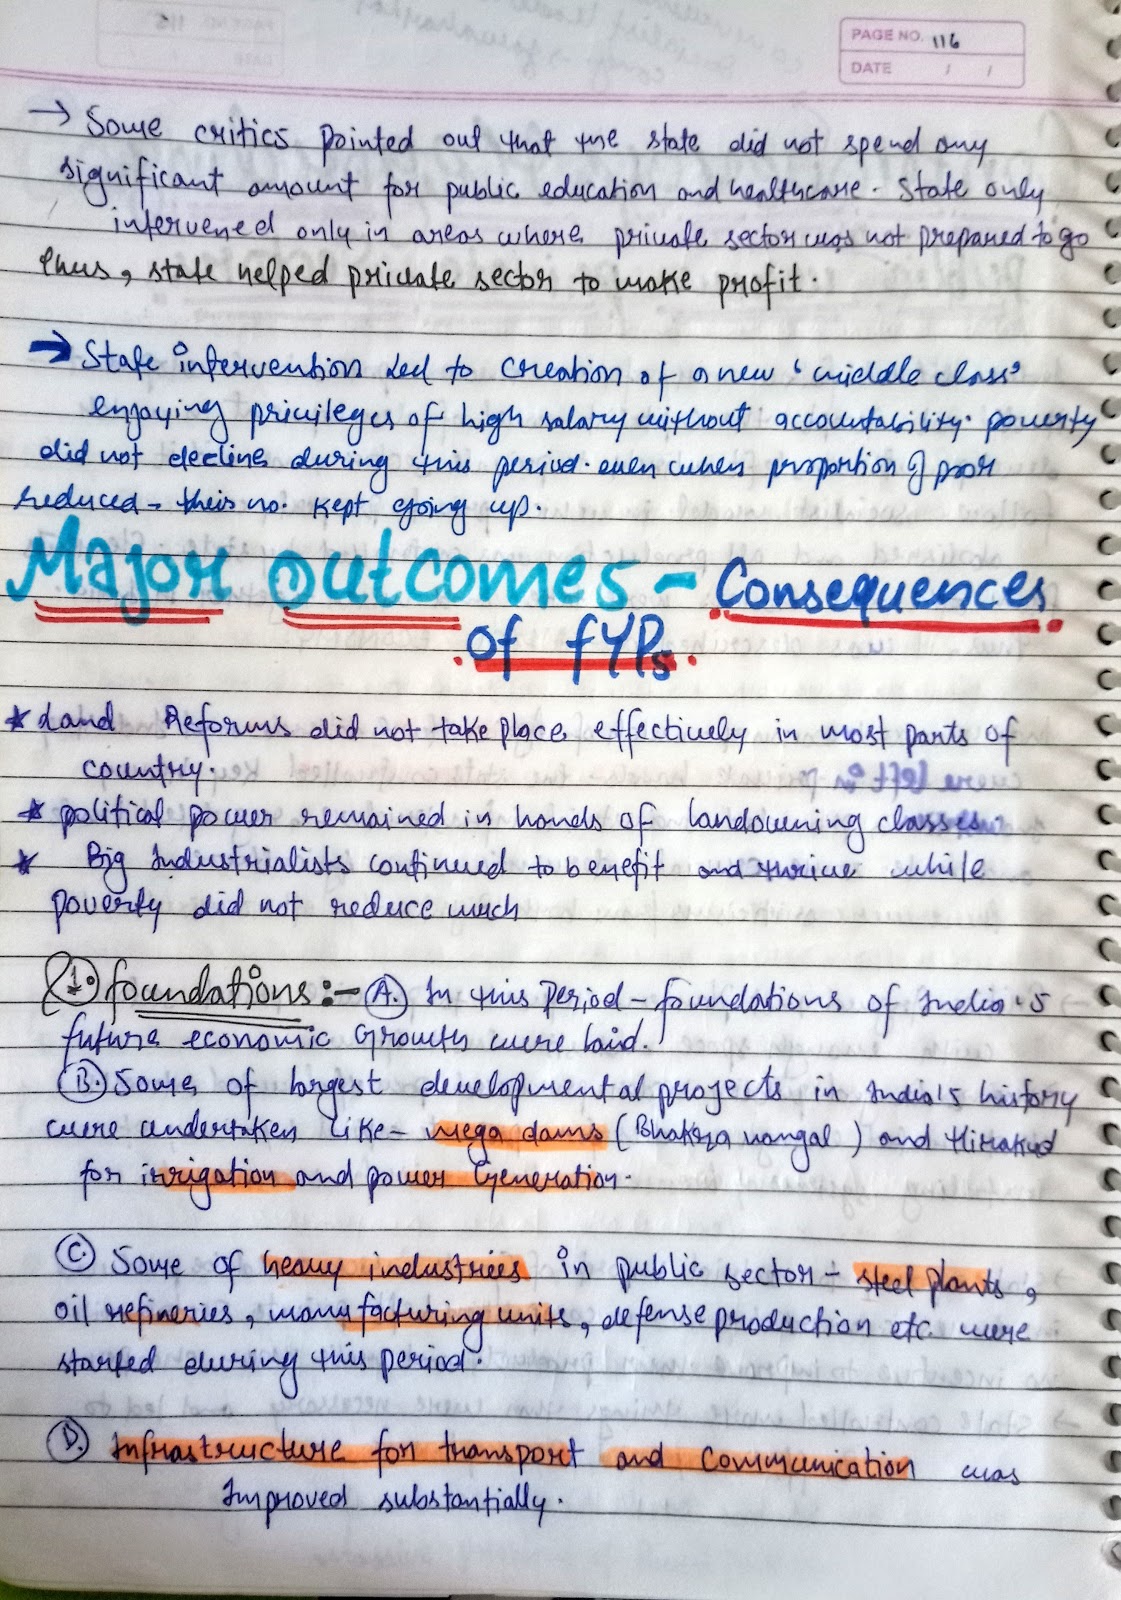 PAGE NO. 116
DATE / /
→ Some critics pointed out that the state did not spend any
significant amount for public education and healthcare. State only
intervened only in areas where private sector was not prepared to go
thus, state helped private sector to make profit.
→ State intervention led to creation of a new 'middle class'
enjoying privileges of high salary without accountability. poverty
did not decline during this period. even when proportion of poor
reduced - their no. kept going up.
Major Outcomes - Consequences
of fYPs.
* Land Reforms did not take place effectively in most parts of
country.
* political power remained in hands of landowning classes.
* Big Industrialists continued to benefit and thrive while
poverty did not reduce much
1. foundations :- A. In this Period - foundations of India's
future economic Growth were laid.
B. Some of largest developmental projects in India's history
were undertaken like - mega dams (Bhakra nangal) and Hirakud
for irrigation and power Generation.
C. Some of heavy industries in public sector - steel plants,
oil refineries, manufacturing units, defense production etc were
started during this period.
D. Infrastructure for transport and Communication was
Improved substantially.